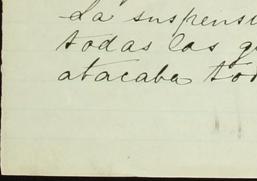 La suspensi
todas las g
atacaba to